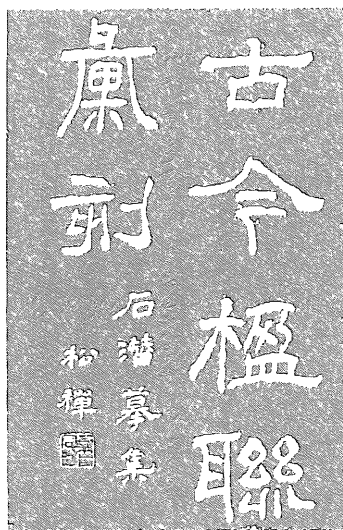 古今楹聯
彙刻
石潛摹集
松禪